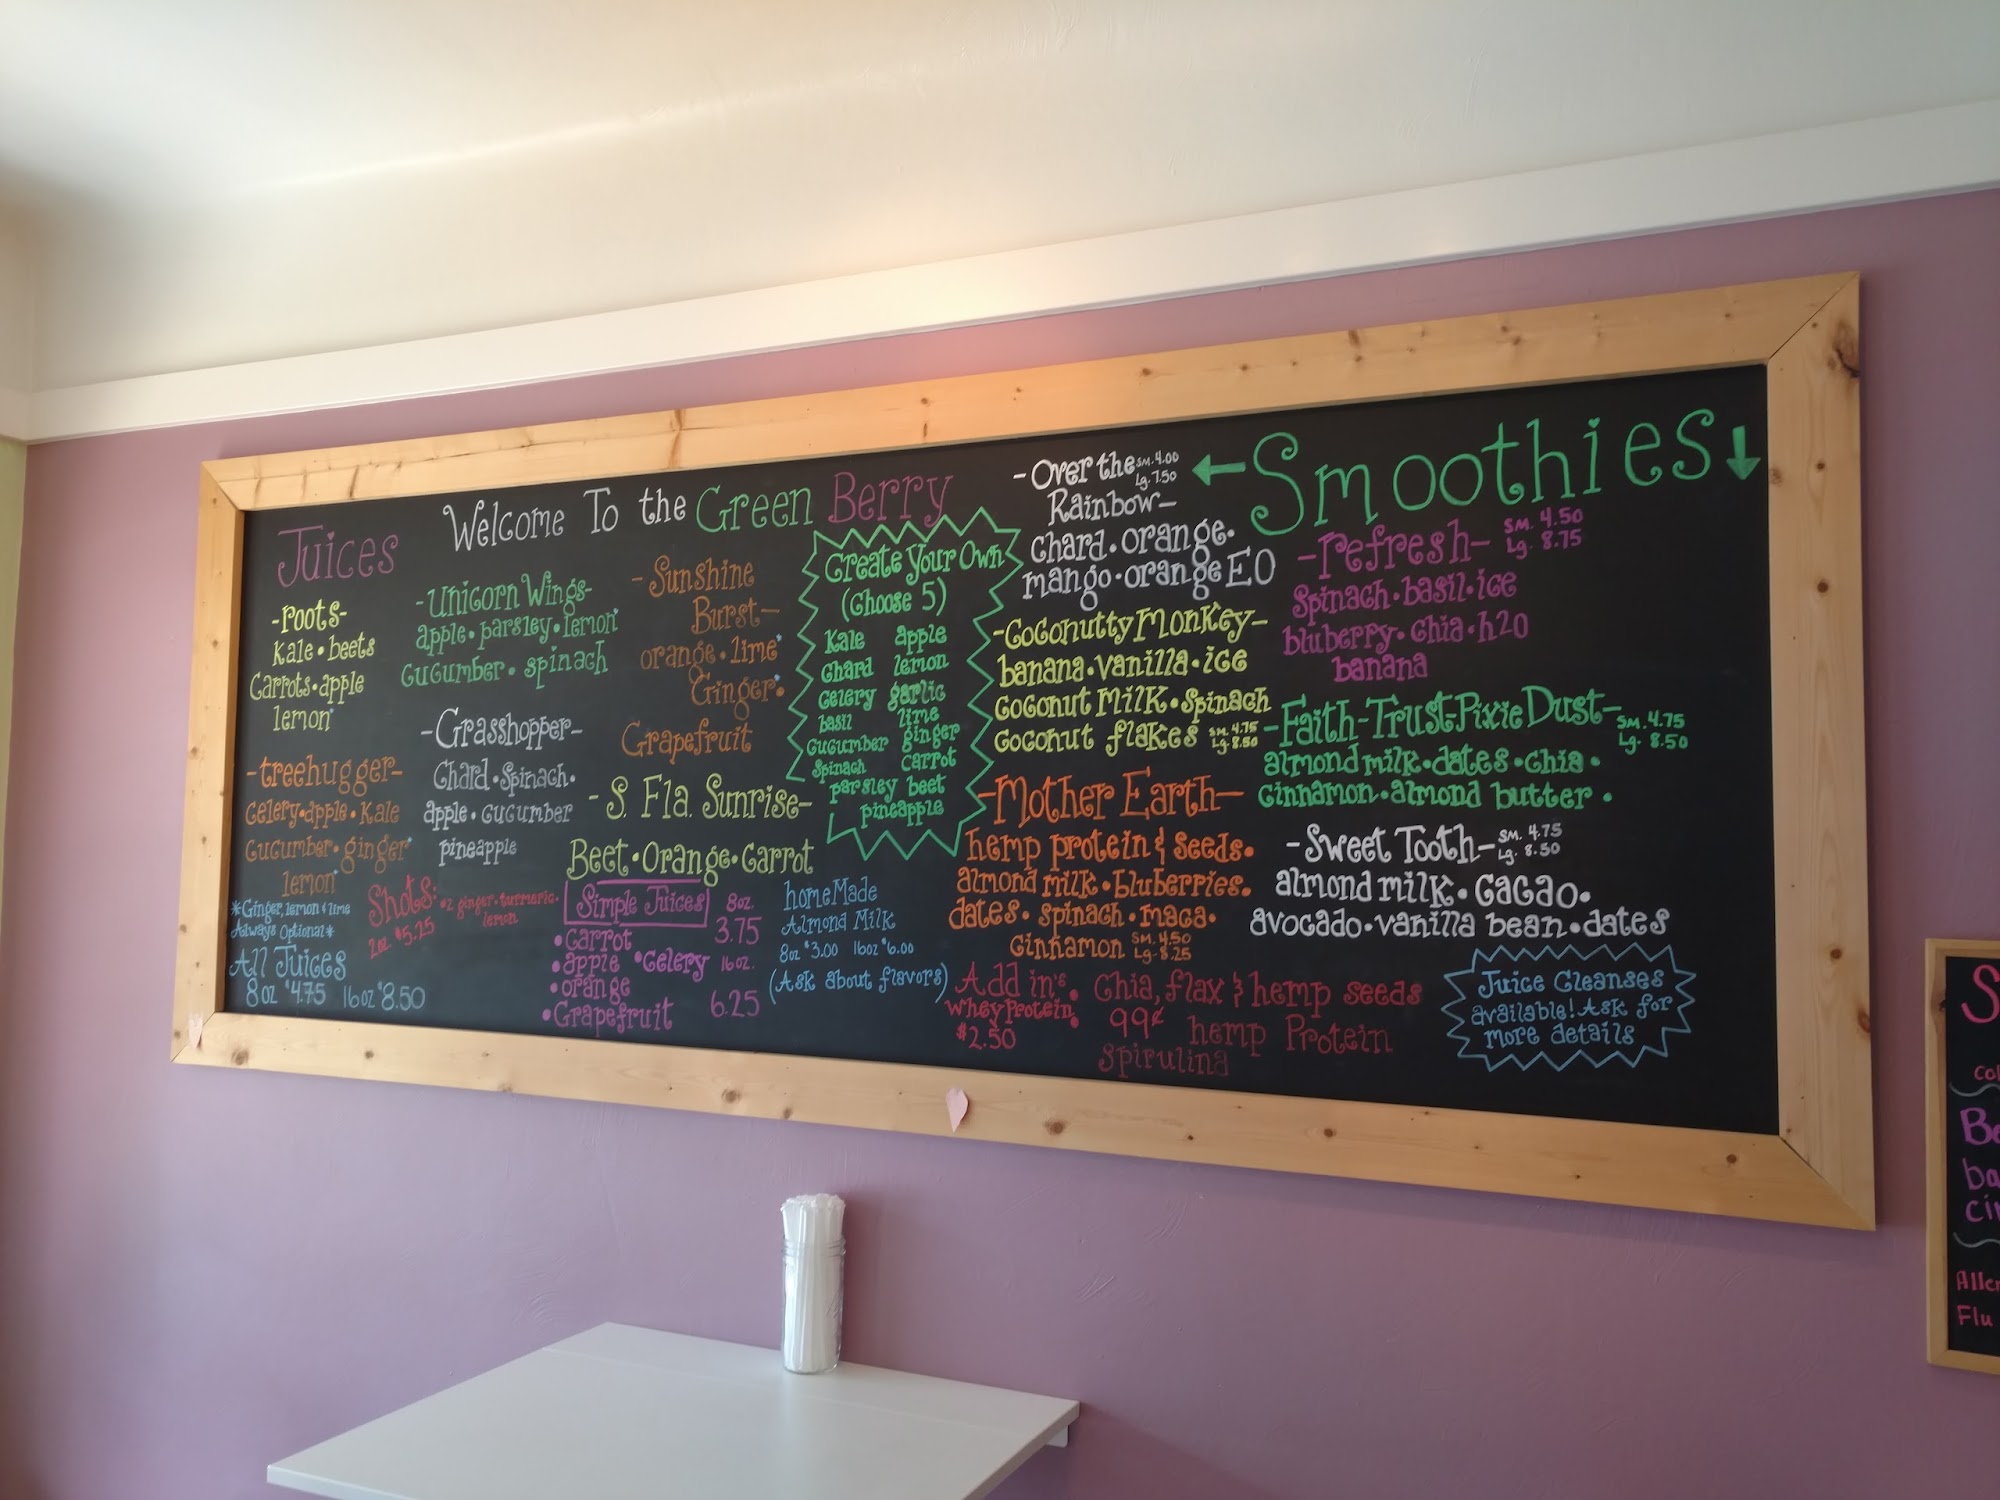 Welcome To the Green Berry
Juices
-roots-
Kale • beets
Carrots • apple
lemon*
-treehugger-
Celery • apple • Kale
Cucumber • ginger*
lemon*
*Ginger, lemon & lime
Always Optional*
All Juices
8 oz $4.75 16 oz $8.50
-Unicorn Wings-
apple • parsley • lemon*
Cucumber • spinach
-Grasshopper-
Chard • Spinach •
apple • cucumber
pineapple
Shots:
2oz. $5.25
ginger • turmeric •
lemon
-Sunshine
Burst-
orange • lime*
Ginger* •
Grapefruit
-S. Fla. Sunrise-
Beet • Orange • Carrot
Simple Juices
8oz.
3.75
• Carrot
• apple • Celery
16oz.
• orange
• Grapefruit
6.25
homeMade
Almond Milk
8oz $3.00 16oz $6.00
(Ask about flavors)
Create Your Own
(Choose 5)
Kale apple
Chard lemon
Celery garlic
basil lime
Cucumber ginger
Spinach carrot
parsley beet
pineapple
Smoothies
-Over the
Rainbow-
Sm. 4.00
Lg. 7.50
Chard • orange •
mango • orange EO
-Coconutty Monkey-
banana • vanilla • ice
Coconut Milk • Spinach
Coconut flakes
Sm. 4.75
Lg. 8.50
-Mother Earth-
hemp protein & seeds •
almond milk • bluberries •
dates • spinach • maca •
Cinnamon
Sm. 4.50
Lg. 8.25
-refresh-
Sm. 4.50
Lg. 8.75
Spinach • basil • ice
bluberry • Chia • h20
banana
-Faith-Trust-Pixie Dust-
Sm. 4.75
Lg. 8.50
almond milk • dates • chia •
Cinnamon • almond butter •
-Sweet Tooth-
Sm. 4.75
Lg. 8.50
almond milk • Cacao •
avocado • vanilla bean • dates
Add in's
Whey Protein
$2.50
Chia, flax & hemp seeds
99¢ hemp Protein
Spirulina
Juice Cleanses
available! Ask for
more details
S
Flu